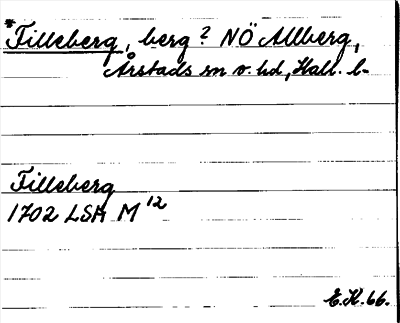 *Filleberg, berg? NÖ Allberg,
Årstads sn o. hd, Hall. l-
Filleberg
1702 LSA M 12
E.K. 66.